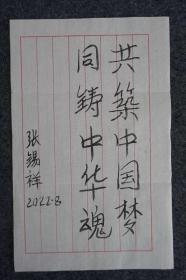 共築中国梦
同铸中华魂
张锡祥
2022.8